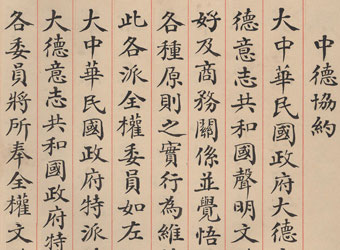 中德協約
大中華民國政府大德
德意志共和國聲明文
好及商務關係並覺悟
各種原則之實行為維
此各派全權委員如左
大中華民國政府特派
大德意志共和國政府特
各委員將所奉全權文